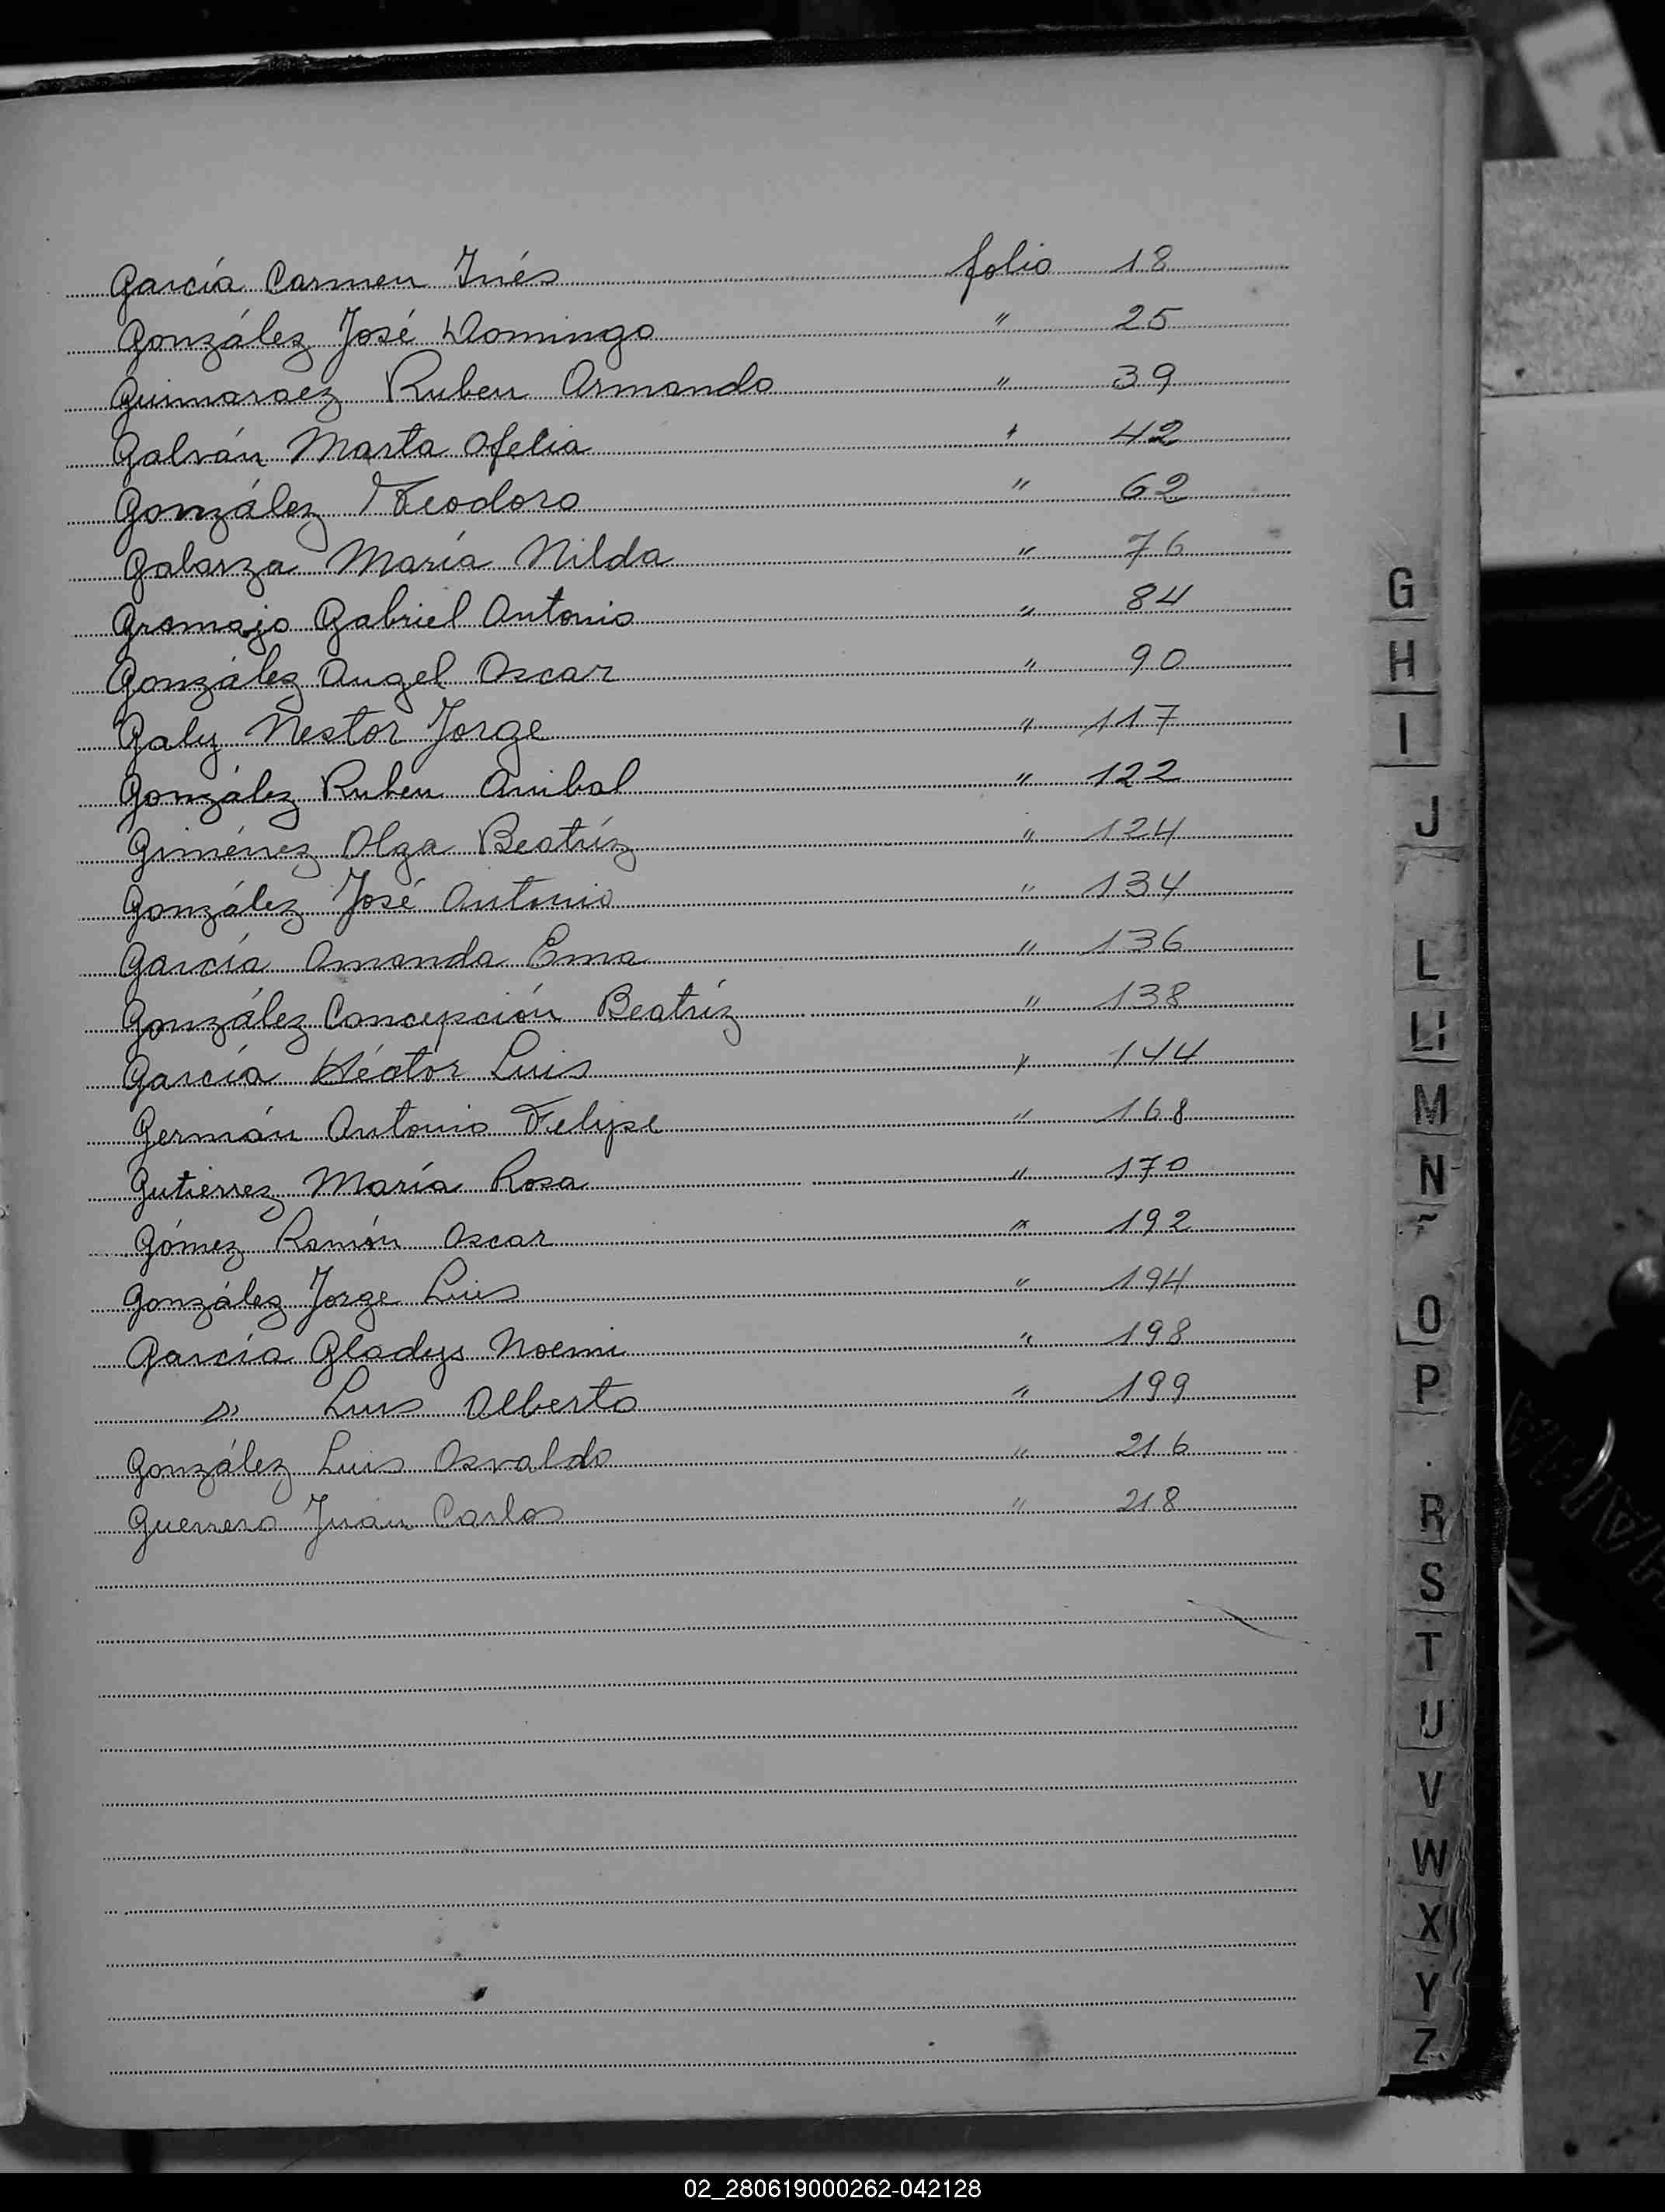 García Carmen Inés folio 18
González José Domingo " 25
Guimaraez Ruben Armando " 39
Galván Marta Ofelia " 42
González Teodoro " 62
Galarza María Nilda " 76
Gramajo Gabriel Antonio " 84
González Angel Oscar " 90
Galy Nestor Jorge " 117
González Ruben Anibal " 122
Giménez Olga Beatríz " 124
González José Antonio " 134
García Amanda Ema " 136
González Concepción Beatríz " 138
García Héctor Luis " 144
Germán Antonio Felipe " 168
Gutiérrez María Rosa " 170
Gómez Ramón Oscar " 192
González Jorge Luis " 194
García Gladys Noemi " 198
" Luis Alberto " 199
González Luis Osvaldo " 216
Guerrero Juan Carlos " 218
G
H
I
J
L
Ll
M
N
Ñ
O
P
R
S
T
U
V
W
X
Y
Z
02_280619000262-042128